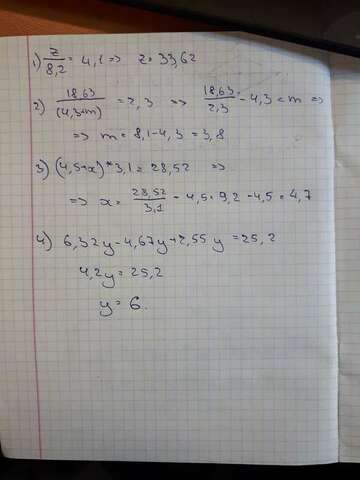 1) z/8,2 = 4,1 => z = 33,62
2) 18,63/(4,3+m) = 2,3 => 18,63/2,3 - 4,3 = m =>
=> m = 8,1 - 4,3 = 3,8
3) (4,5+x)*3,1 = 28,52 =>
=> x = 28,52/3,1 - 4,5 = 9,2 - 4,5 = 4,7
4) 6,32y - 4,67y + 2,55y = 25,2
4,2y = 25,2
y = 6.